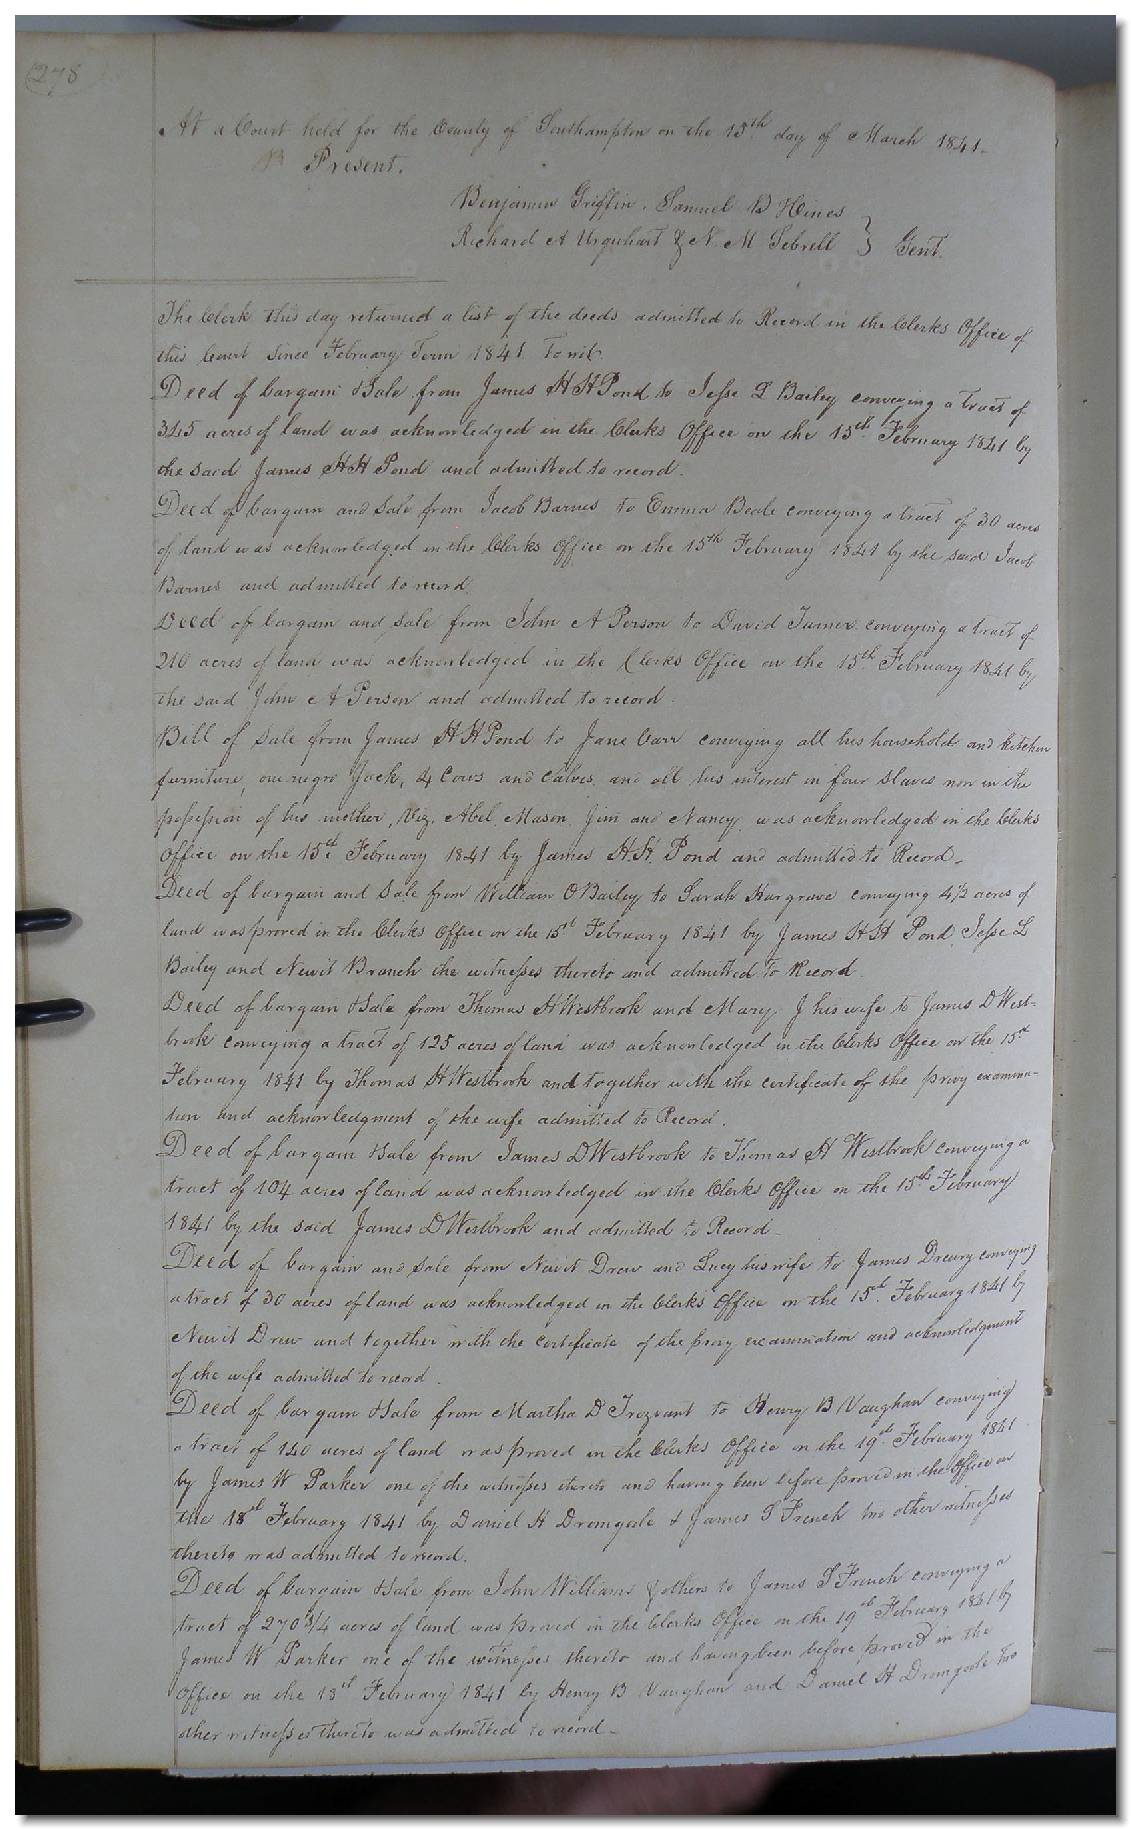 278
At a Court held for the County of Southampton on the 15th day of March 1841.
Present.
Benjamin Griffin, Samuel B Hines
Richard A Urquhart & N. M Sebrell } Gent.
The Clerk this day returned a list of the deeds admitted to Record in the Clerks Office of
this Court since February Term 1841. Towit.
Deed of bargain & Sale from James H H Pond to Jesse L Bailey conveying a tract of
345 acres of land was acknowledged in the Clerks Office on the 15th February 1841 by
the said James H H Pond and admitted to record.
Deed of bargain and sale from Jacob Barnes to Emma Beale conveying a tract of 30 acres
of land was acknowledged in the Clerks Office on the 15th February 1841 by the said Jacob
Barnes and admitted to record.
Deed of bargain and sale from John A Person to David Turner conveying a tract of
210 acres of land was acknowledged in the Clerks Office on the 15th February 1841 by
the said John A Person and admitted to record.
Bill of sale from James H H Pond to Jane Carr conveying all his household and kitchen
furniture, one negro Jack, 4 Cows and Calves, and all his interest in four slaves now in the
possession of his mother, Viz, Abel, Mason, Jim and Nancy, was acknowledged in the Clerks
Office on the 15th February 1841 by James H. H. Pond and admitted to Record.
Deed of bargain and sale from William O Bailey to Sarah Hargrave conveying 4 1/2 acres of
land was proved in the Clerks Office on the 15th February 1841 by James H H Pond, Jesse L
Bailey and Newit Branch the witnesses thereto and admitted to Record.
Deed of bargain & Sale from Thomas H Westbrook and Mary J his wife to James D West-
brook conveying a tract of 125 acres of land was acknowledged in the Clerks Office on the 15th
February 1841 by Thomas H Westbrook and together with the certificate of the privy examina-
tion and acknowledgment of the wife admitted to Record.
Deed of bargain & Sale from James D Westbrook to Thomas H Westbrook conveying a
tract of 104 acres of land was acknowledged in the Clerks Office on the 15th February
1841 by the said James D Westbrook and admitted to Record.
Deed of bargain and sale from Newit Drew and Lucy his wife to James Drewry conveying
a tract of 30 acres of land was acknowledged in the Clerks Office on the 15th February 1841 by
Newit Drew and together with the certificate of the privy examination and acknowledgment
of the wife admitted to record.
Deed of bargain & Sale from Martha D Trezvant to Henry B Vaughan conveying
a tract of 140 acres of land was proved in the Clerks Office on the 19th February 1841
by James W Parker one of the witnesses thereto and having been before proved in the Office on
the 18th February 1841 by Daniel H Dromgoole & James S French two other witnesses
thereto was admitted to record.
Deed of bargain & Sale from John Williams & others to James S French conveying a
tract of 270 3/4 acres of land was proved in the Clerks Office on the 19th February 1841 by
James W Parker one of the witnesses thereto and having been before proved in the
Office on the 18th February 1841 by Henry B Vaughan and Daniel H Dromgoole two
other witnesses thereto was admitted to record.